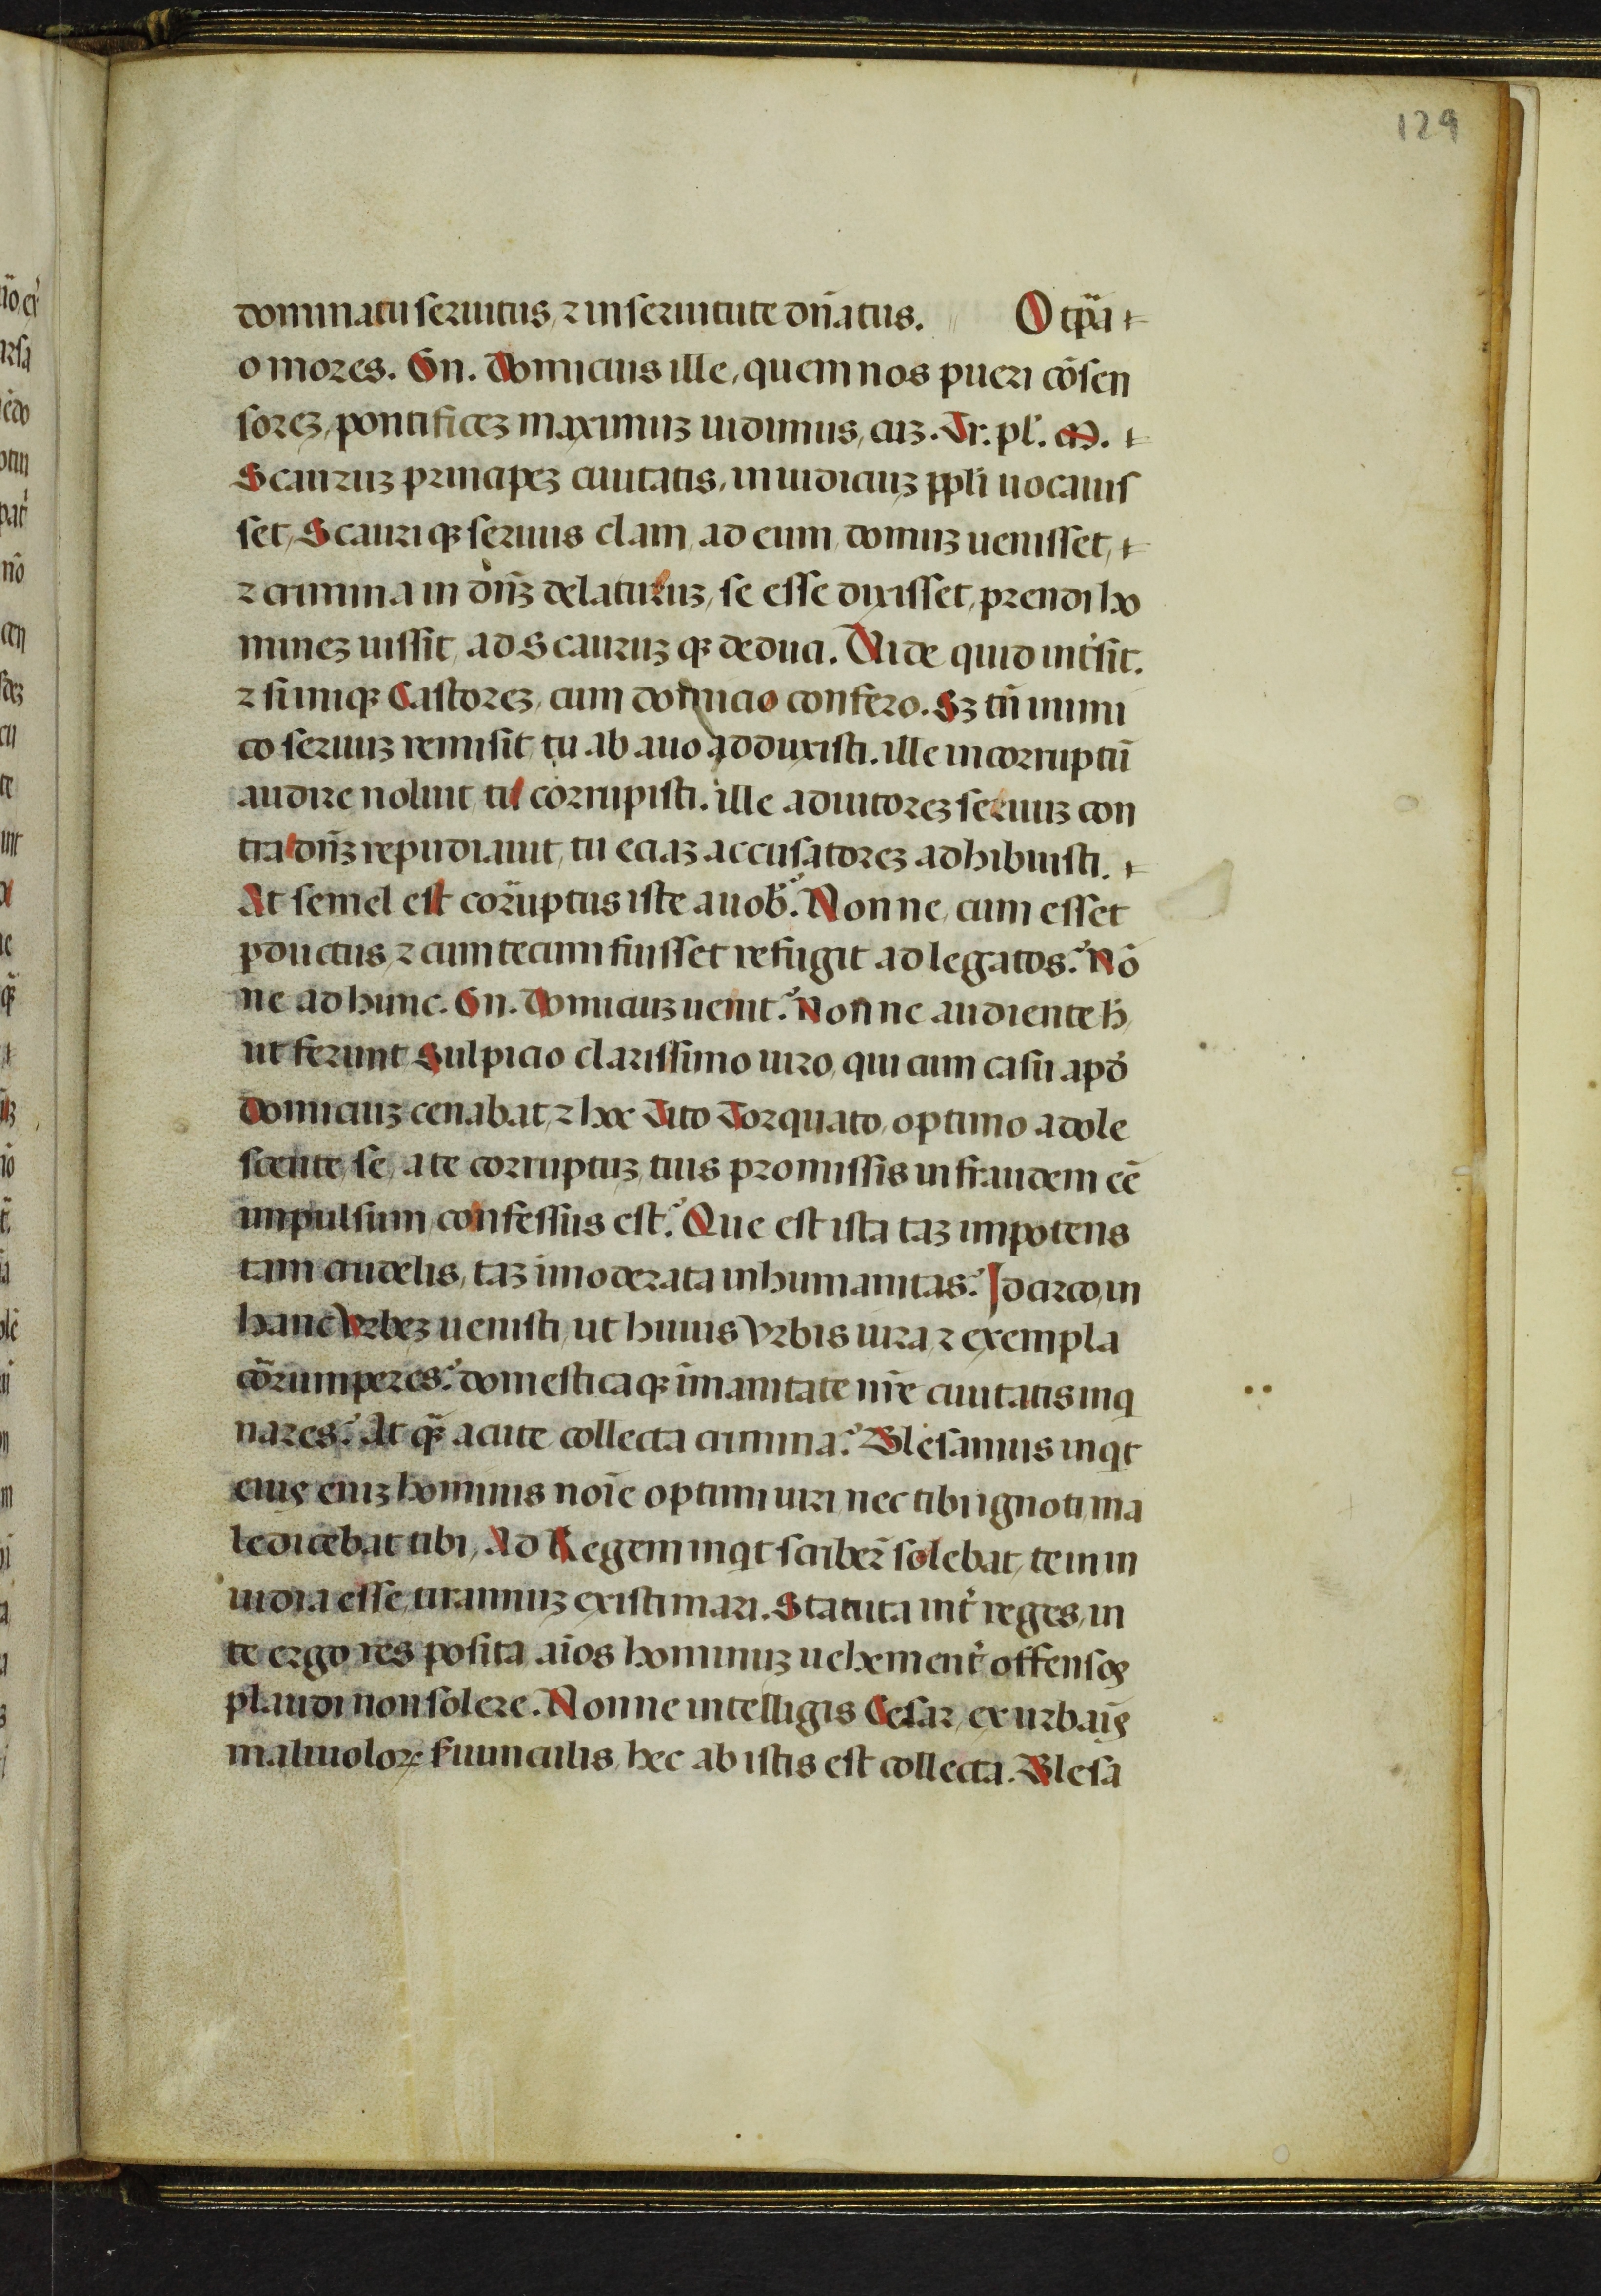 129
dominatu seruitus, ⁊ in seruitute dn̄atus. O tp̄a
o mores. Gn. Domicius ille, quem nos pueri cōsen
soreꝫ, pontificeꝫ maximuꝫ uidimus, cuꝫ. Tr. pl'. M.
Scauruꝫ principeꝫ ciuitatis, in iudiciuꝫ ppl̄i uocauis
set, Scauriqꝫ seruus clam, ad eum, domuꝫ uenisset,
⁊ crimina in dn̄ꝫ delaturuꝫ, se esse dixisset, prendi ho
mineꝫ iussit, ad Scauruꝫ qꝫ deduci. Vide quid int̓sit.
⁊ si iniqꝫ Castoreꝫ, cum domicio confero. Sꝫ tn̄ inimi
co seruuꝫ remisit, tu ab auo adduxisti. ille incorruptū
audire noluit, tu corrupisti. ille adiutoreꝫ seruuꝫ con
tra dn̄ꝫ repudiauit, tu eciaꝫ accusatoreꝫ adhibuisti.
At semel est cor̄uptus iste a uob̓. Nonne, cum esset
ꝓductus, ⁊ cum tecum fuisset refugit ad legatos. Nō
ne ad hunc. Gn. Domiciuꝫ uenit. Nonne audiente h̓,
ut ferunt Sulpicio clarissimo uiro, qui cum casu apd̓
Domiciuꝫ cenabat, ⁊ hoc Tito Torquato, optimo adole
scente, se, a te corruptuꝫ, tuis promissis in fraudem eē
impulsum, confessus est. Que est ista taꝫ impotens
tam crudelis, taꝫ imoderata inhumanitas. Idcirco, in
hanc Vrbeꝫ uenisti, ut huius Vrbis iura, ⁊ exempla
cōrumperes. domesticaqꝫ īmanitate nr̄e ciuitatis inq
nares. At qꝫ̄ acute collecta crimina. Blesamius inqt
eius eniꝫ hominis noīe optimi uiri nec tibi ignoti ma
ledicebat tibi, Ad Regem inqt scriber̄ solebat, te in in
uidia esse, tirannuꝫ existimari. Statuta int̓ reges, in
te ergo res posita, aīos hominuꝫ uehement̓ offensos
plaudi non solere. Nonne intelligis Cesar, ex urbaīs
maliuoloꝝ ꝼuunculis, hec ab istis est collecta. Blesā